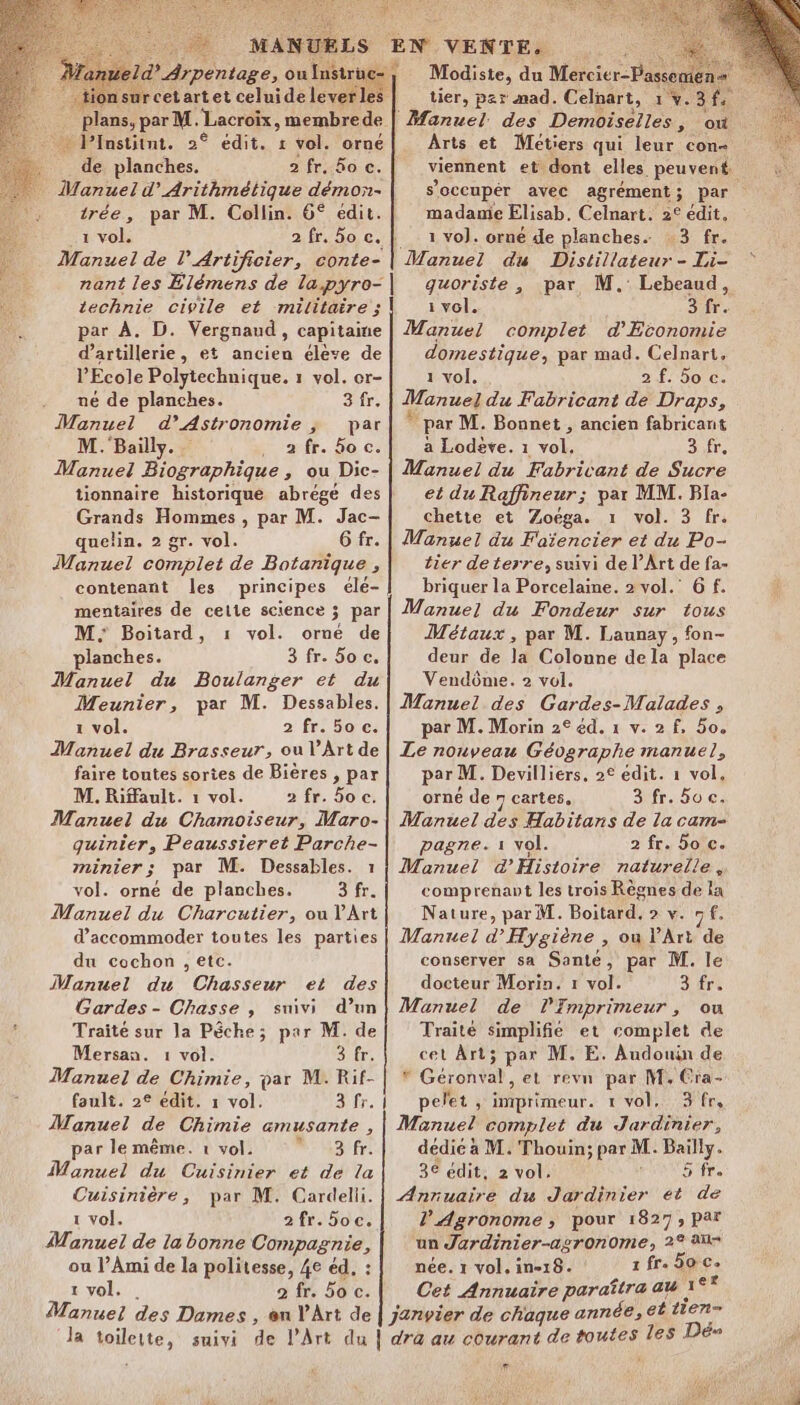 MANUELS EN VENTE.
Manuel d'Arpentage, ou Instruc-
tion sur cet art et celui de lever les
plans, par M. Lacroix, membre de
l'Institut. 2e édit. 1 vol. orné
de planches. 2 fr. 50 c.
Manuel d'Arithmétique démon-
trée, par M. Collin. 6e édit.
1 vol. 2 fr. 50 c.
Manuel de l'Artificier, conte-
nant les Élémens de la pyro-
technie civile et militaire;
par A. D. Vergnaud, capitaine
d'artillerie, et ancien élève de
l'Ecole Polytechnique. 1 vol. or-
né de planches. 3 fr.
Manuel d'Astronomie, par
M. Bailly. 2 fr. 50 c.
Manuel Biographique, ou Dic-
tionnaire historique abrégé des
Grands Hommes, par M. Jac-
quelin. 2 gr. vol. 6 fr.
Manuel complet de Botanique,
contenant les principes élé-
mentaires de cette science; par
M. Boitard, 1 vol. orné de
planches. 3 fr. 50 c.
Manuel du Boulanger et du
Meunier, par M. Dessables.
1 vol. 2 fr. 50 c.
Manuel du Brasseur, ou l'Art de
faire toutes sortes de Bières, par
M. Riffault. 1 vol. 2 fr. 50 c.
Manuel du Chamoiseur, Maro-
quinier, Peaussier et Parche-
minier; par M. Dessables. 1
vol. orné de planches. 3 fr.
Manuel du Charcutier, ou l'Art
d'accommoder toutes les parties
du cochon, etc.
Manuel du Chasseur et des
Gardes-Chasse, suivi d'un
Traité sur la Pêche; par M. de
Mersan. 1 vol. 3 fr.
Manuel de Chimie, par M. Rif-
fault. 2e édit. 1 vol. 3 fr.
Manuel de Chimie amusante,
par le même. 1 vol. 3 fr.
Manuel du Cuisinier et de la
Cuisinière, par M. Cardelli.
1 vol. 2 fr. 50 c.
Manuel de la bonne Compagnie,
ou l'Ami de la politesse, 4e éd. :
1 vol. 2 fr. 50 c.
Manuel des Dames, ou l'Art de
la toilette, suivi de l'Art du
Modiste, du Mercier-Passemen-
tier, par mad. Celnart, 1 v. 3 f.
Manuel des Demoiselles, ou
Arts et Métiers qui leur con-
viennent et dont elles peuvent
s'occuper avec agrément; par
madame Elisab. Celnart. 2e édit.
1 vol. orné de planches. 3 fr.
Manuel du Distillateur-Li-
quoriste, par M. Lebeaud,
1 vol. 3 fr.
Manuel complet d'Economie
domestique, par mad. Celnart.
1 vol. 2 f. 50 c.
Manuel du Fabricant de Draps,
par M. Bonnet, ancien fabricant
à Lodève. 1 vol. 3 fr.
Manuel du Fabricant de Sucre
et du Raffineur; par MM. Bla-
chette et Zoéga. 1 vol. 3 fr.
Manuel du Faïencier et du Po-
tier de terre, suivi de l'Art de fa-
briquer la Porcelaine. 2 vol. 6 f.
Manuel du Fondeur sur tous
Métaux, par M. Launay, fon-
deur de la Colonne de la place
Vendôme. 2 vol.
Manuel des Gardes-Malades,
par M. Morin 2e éd. 1 v. 2 f. 50.
Le nouveau Géographe manuel,
par M. Devilliers. 2e édit. 1 vol.
orné de 7 cartes. 3 fr. 50 c.
Manuel des Habitans de la cam-
pagne. 1 vol. 2 fr. 50 c.
Manuel d'Histoire naturelle,
comprenant les trois Règnes de la
Nature, par M. Boitard. 2 v. 7 f.
Manuel d'Hygiène, ou l'Art de
conserver sa Santé, par M. le
docteur Morin. 1 vol. 3 fr.
Manuel de l'Imprimeur, ou
Traité simplifié et complet de
cet Art; par M. E. Audouin de
Géronval, et revu par M. Cra-
pelet, imprimeur. 1 vol. 3 fr.
Manuel complet du Jardinier,
dédié à M. Thouin; par M. Bailly.
3e édit. 2 vol. 5 fr.
Annuaire du Jardinier et de
l'Agronome, pour 1827, par
un Jardinier-agronome, 2e an-
née. 1 vol. in-18. 1 fr. 50 c.
Cet Annuaire paraîtra au 1er
janvier de chaque année, et tien-
dra au courant de toutes les Dé-